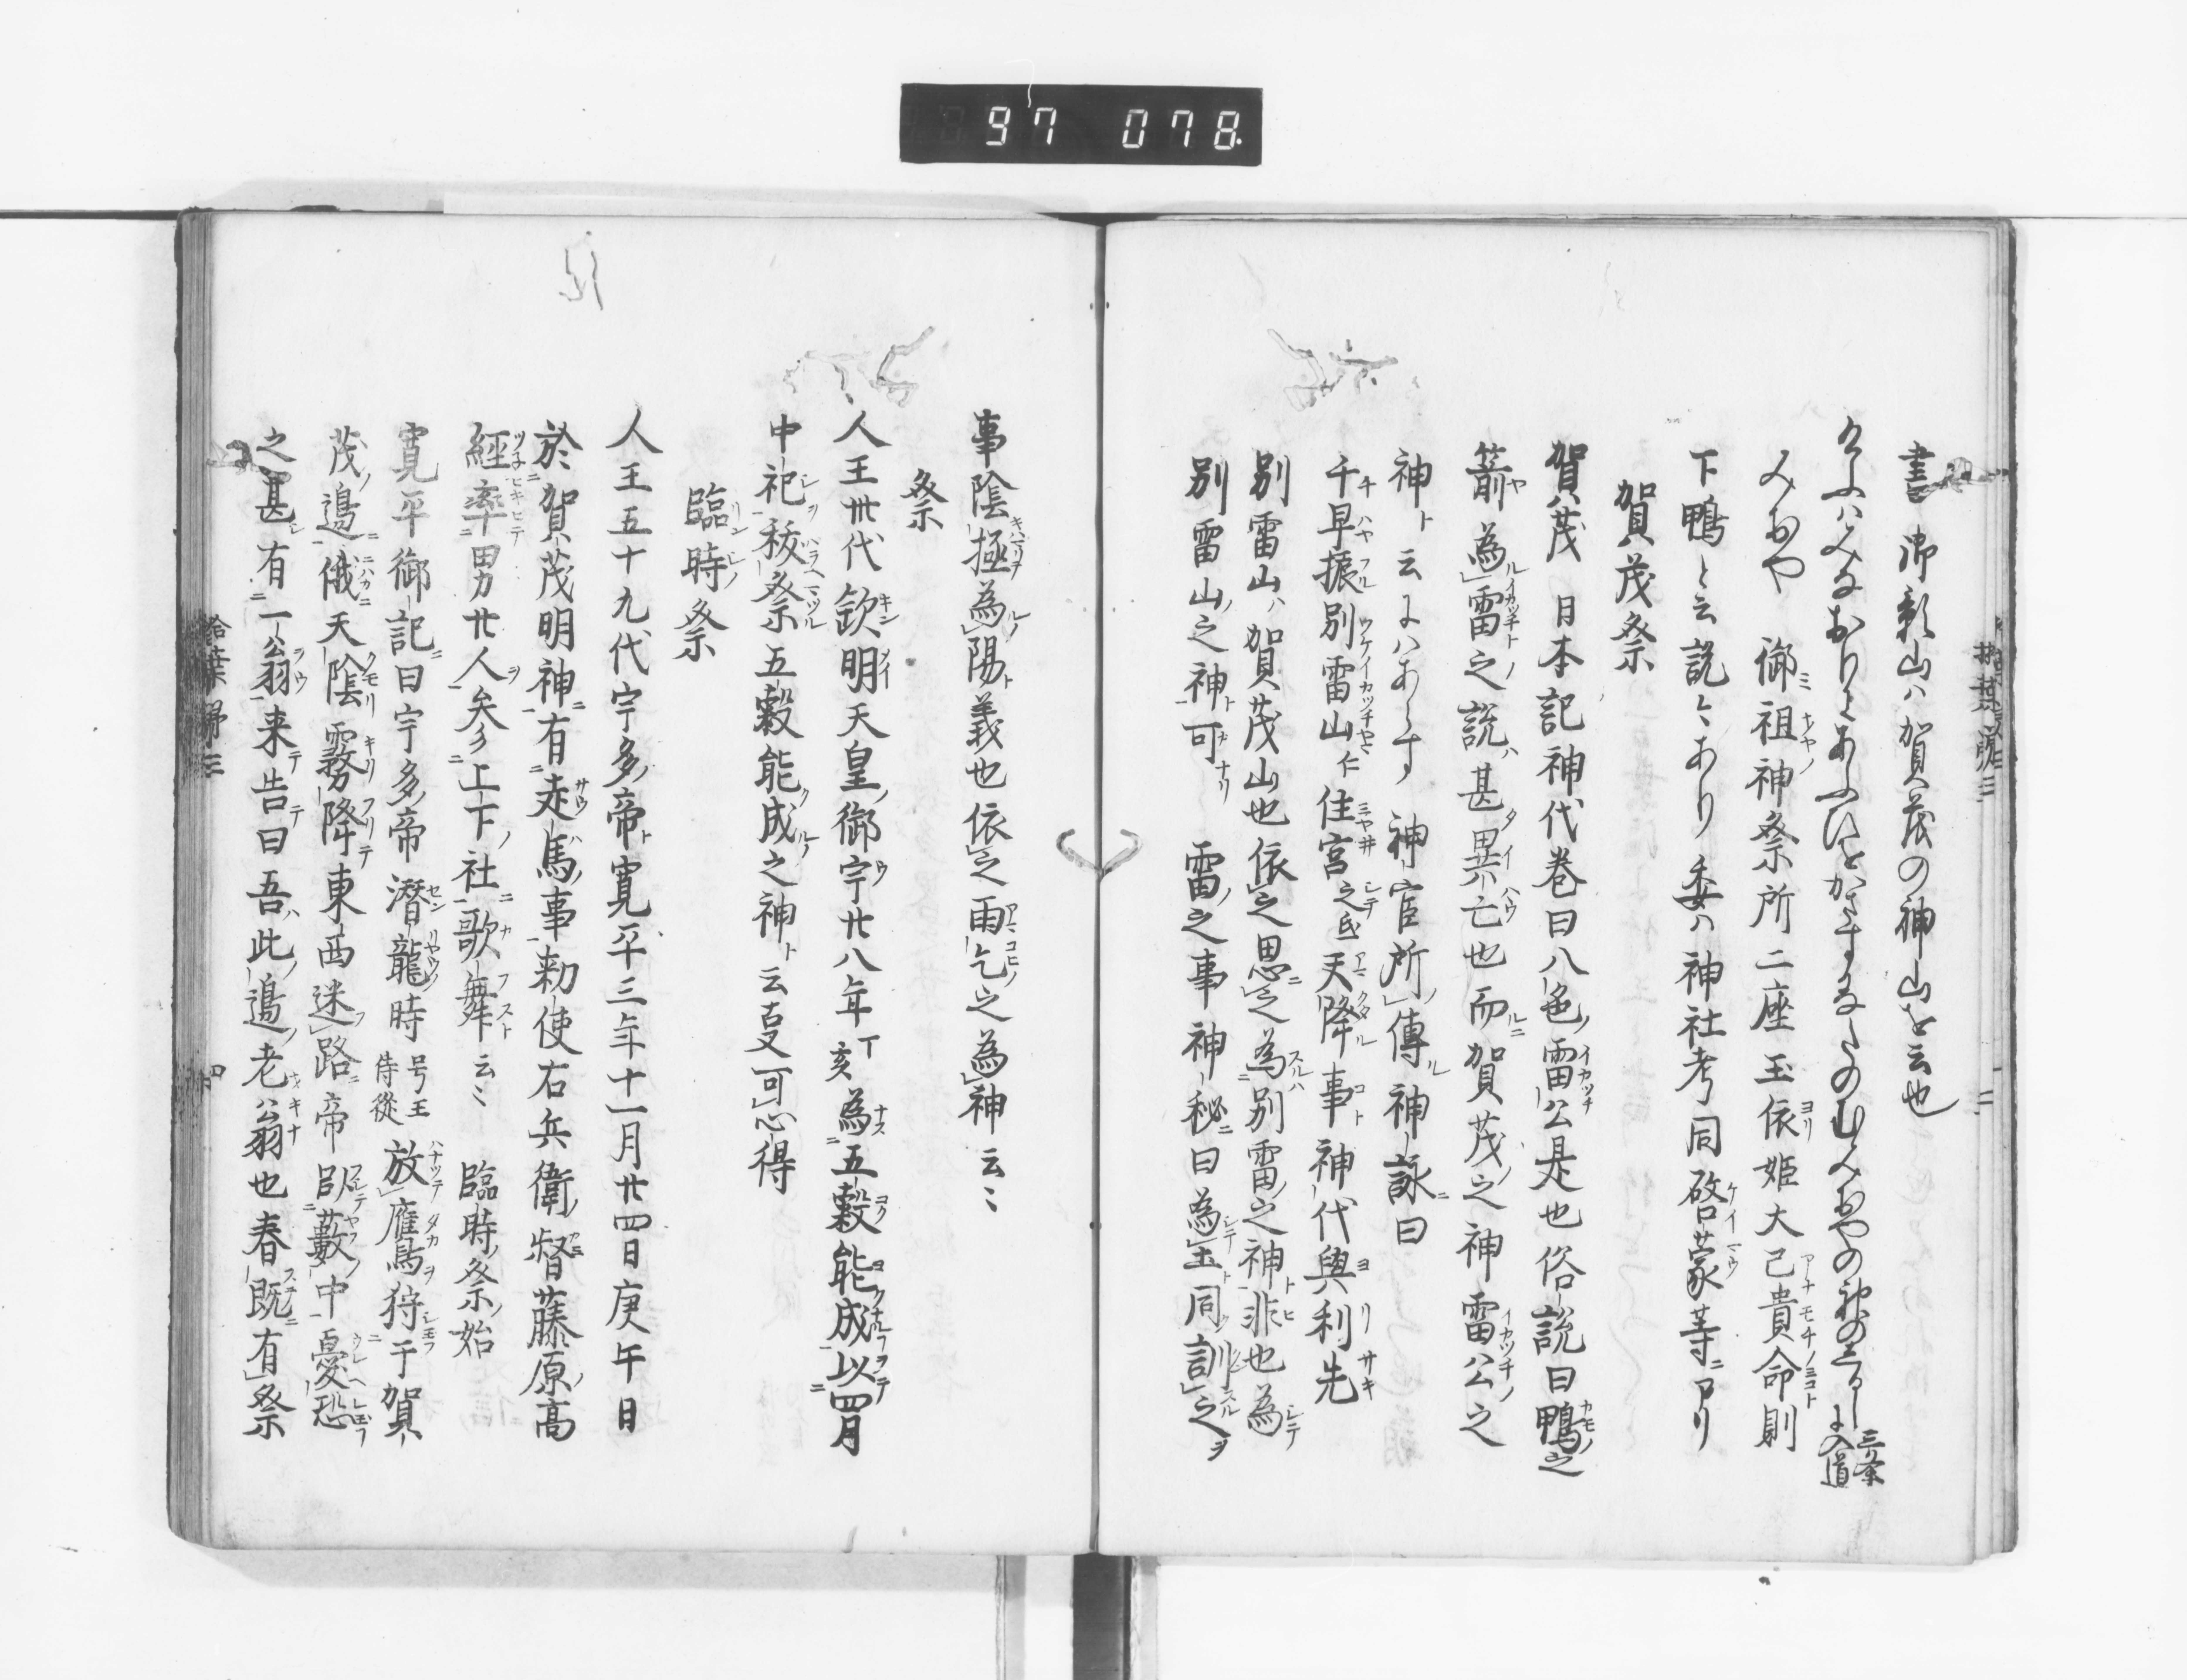 97 078
書 御影山ハ賀茂の神山を云也
けふハみなおりてあふひをかさすなりのむみおやの神のしるしに 三条入道
みおや 御祖神祭所二座玉依姫大己貴命則
下鴨と云説々あり委ハ神社考同啓蒙等ニアリ
賀茂祭
賀茂 日本記神代巻曰八色雷公是也俗説曰鴨之
箭為雷之説ハ甚異亡也而賀茂之神雷公之
神ト云ニハあらす神官所傳神詠曰
千早振別雷山仁住宮之氐天降事神代與利先
別雷山ハ賀茂山也依之思之為別雷之神非也為
別雷山之神可 雷之事神秘曰為玉同訓之
事陰極為陽義也依之雨乞之為神云〻
祭
人王卅代欽明天皇御宇廿八年丁亥為五穀能成以四月
中祀秡祭五穀能成之神ト云㕝可心得
臨時祭
人王五十九代宇多帝寛平三年十一月廿四日庚午日
於賀茂明神有走馬事勅使右兵衛督藤原高
經率男廿人参上下社歌舞云〻 臨時祭始
寛平御記曰宇多帝潜龍時号王侍從放鷹狩于賀
茂邉俄天陰霧降東西迷路帝臥藪中憂恐
之甚有一翁来告曰吾ハ此邉老翁也春既有祭